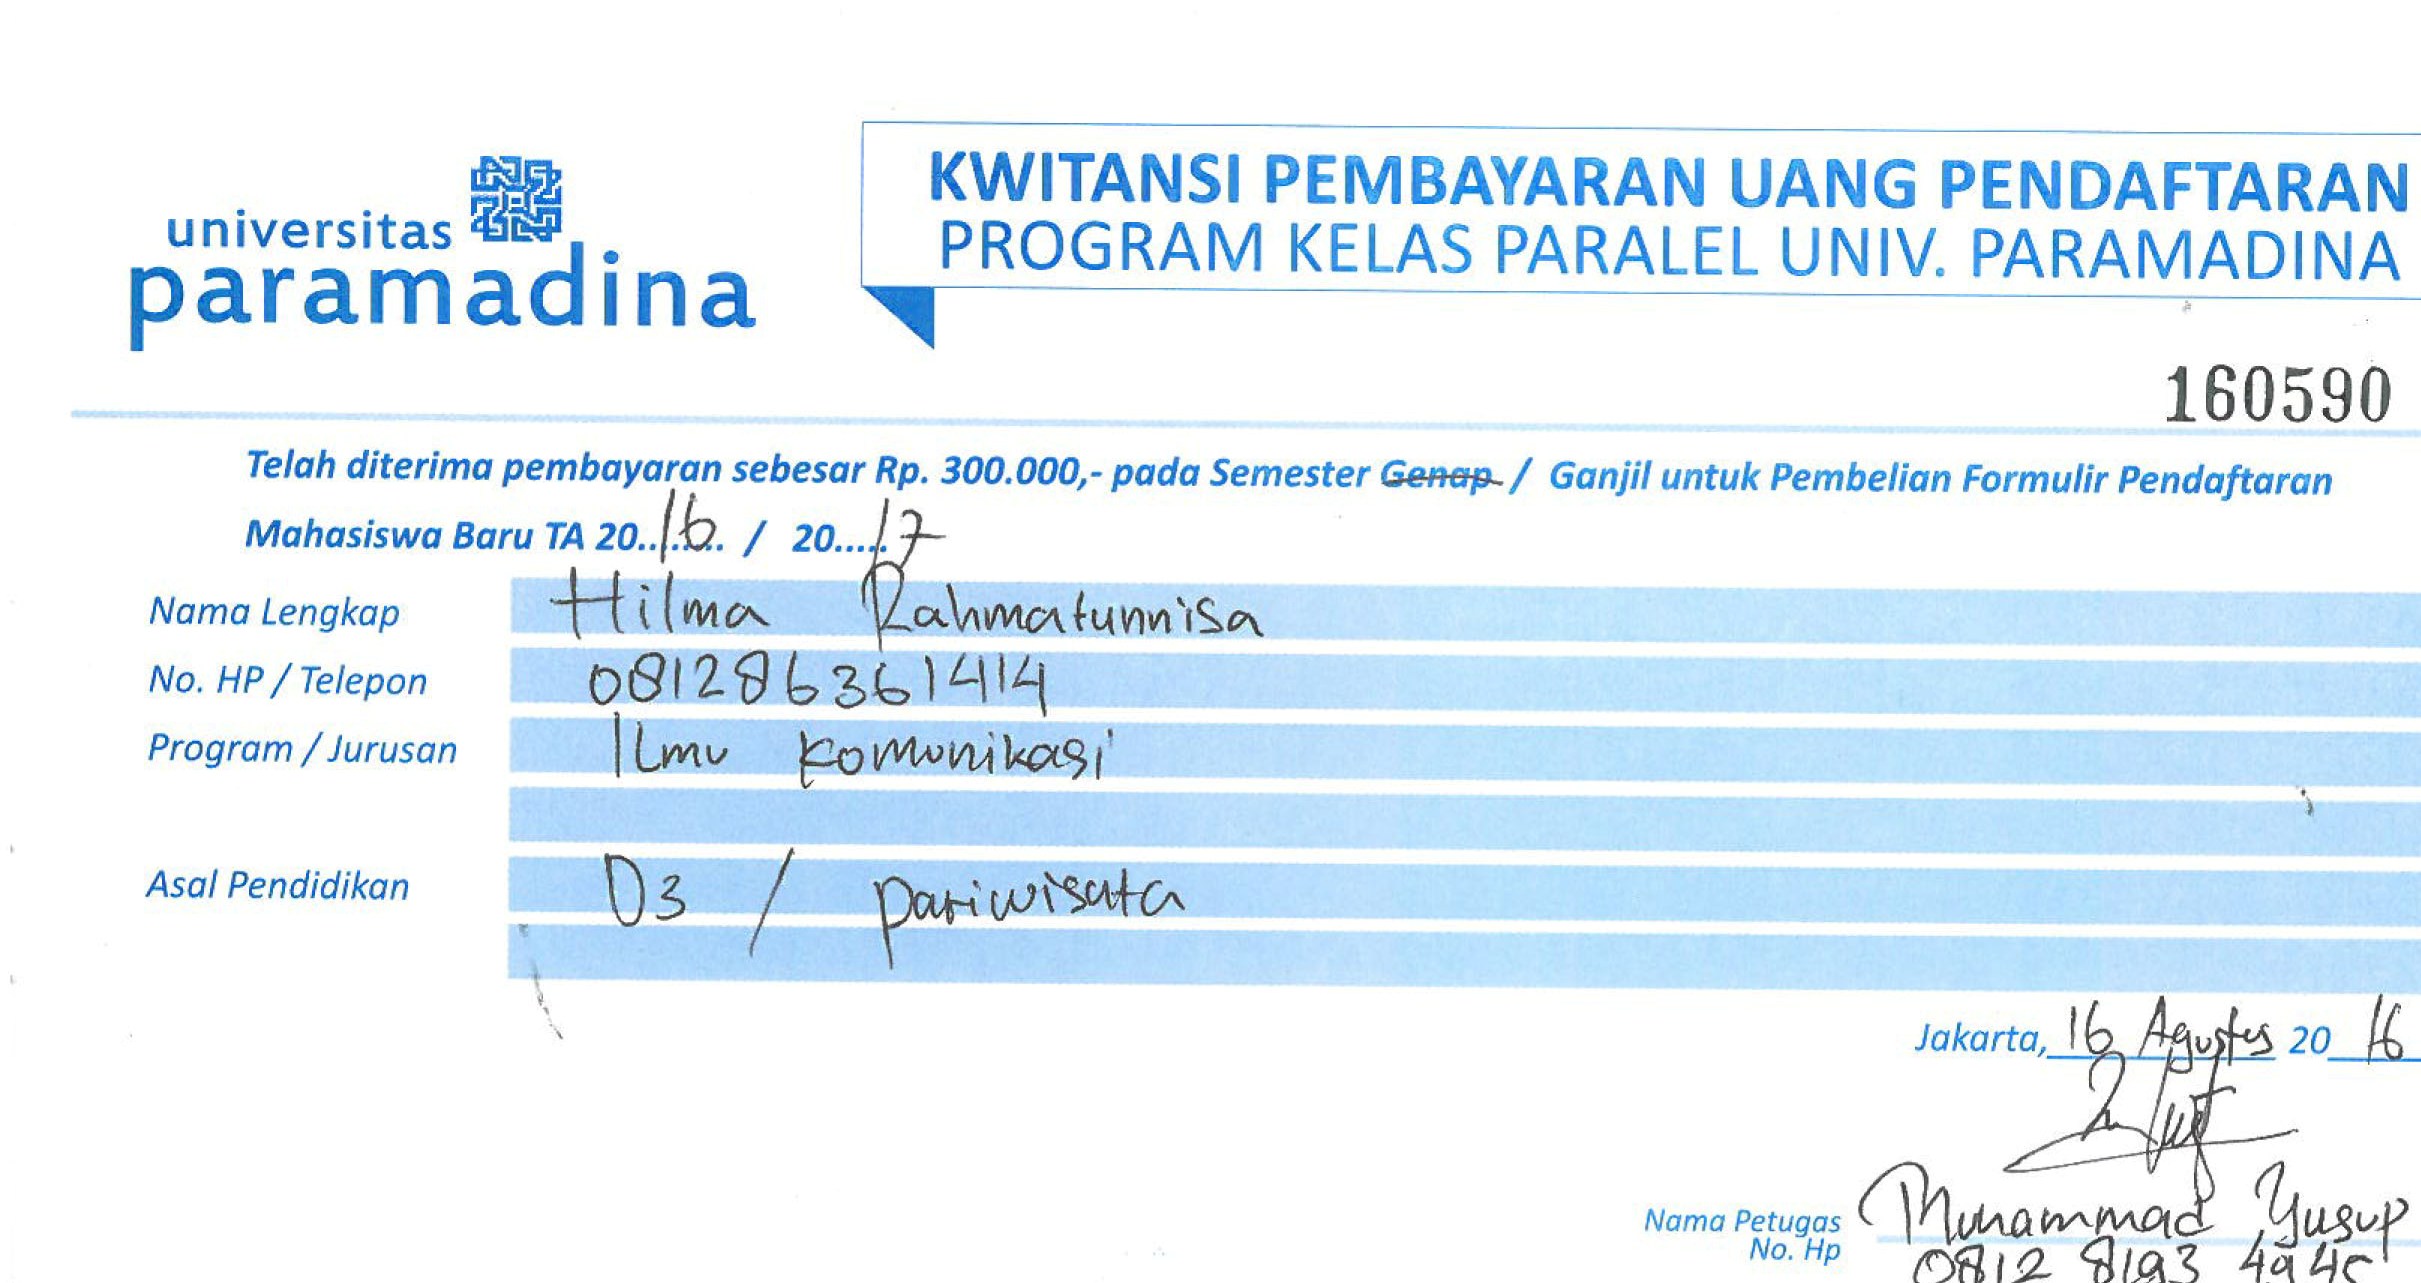 universitas
paramadina
KWITANSI PEMBAYARAN UANG PENDAFTARAN
PROGRAM KELAS PARALEL UNIV. PARAMADINA
160590
Telah diterima pembayaran sebesar Rp. 300.000,- pada Semester Genap / Ganjil untuk Pembelian Formulir Pendaftaran
Mahasiswa Baru TA 20..16... / 20.....17
Nama Lengkap Hilma Rahmatunnisa
No. HP / Telepon 081286361414
Program / Jurusan Ilmu Komunikasi
Asal Pendidikan D3 / pariwisata
Jakarta, 16 Agustus 20 16
Nama Petugas Muhammad Yusup
No. Hp 0812 8193